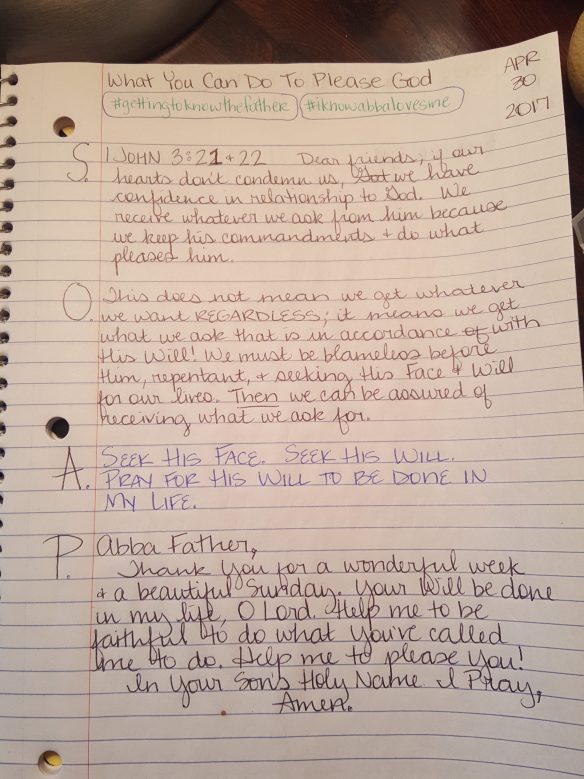 What You Can Do To Please God
#gettingtoknowthefather #iknowabbalovesme
APR
30
2017
S. 1 JOHN 3:21+22 Dear friends, if our
hearts don't condemn us, God we have
confidence in relationship to God. We
receive whatever we ask from him because
we keep his commandments + do what
pleased him.
O. This does not mean we get whatever
we want REGARDLESS; it means we get
what we ask that is in accordance of with
His Will! We must be blameless before
Him, repentant, + seeking His Face + Will
for our lives. Then we can be assured of
receiving what we ask for.
A. SEEK HIS FACE. SEEK HIS WILL.
PRAY FOR HIS WILL TO BE DONE IN
MY LIFE.
P. Abba Father,
Thank You for a wonderful week
+ a beautiful Sunday. Your Will be done
in my life, O Lord. Help me to be
faithful to do what You've called
me to do. Help me to please You!
In Your Son's Holy Name I Pray,
Amen.